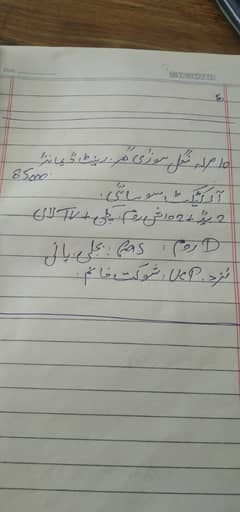 10 مرلہ ڈبل سٹوری گھر۔ رینٹ ڈیمانڈ
85000
آرکیٹیکٹ سوسائٹی۔
2 بیڈ + 2 اٹیچ باتھ روم + کچن + TV لاؤنج
D روم ۔ GAS ، بجلی ، پانی
نزد UCP ، شوکت خانم ۔